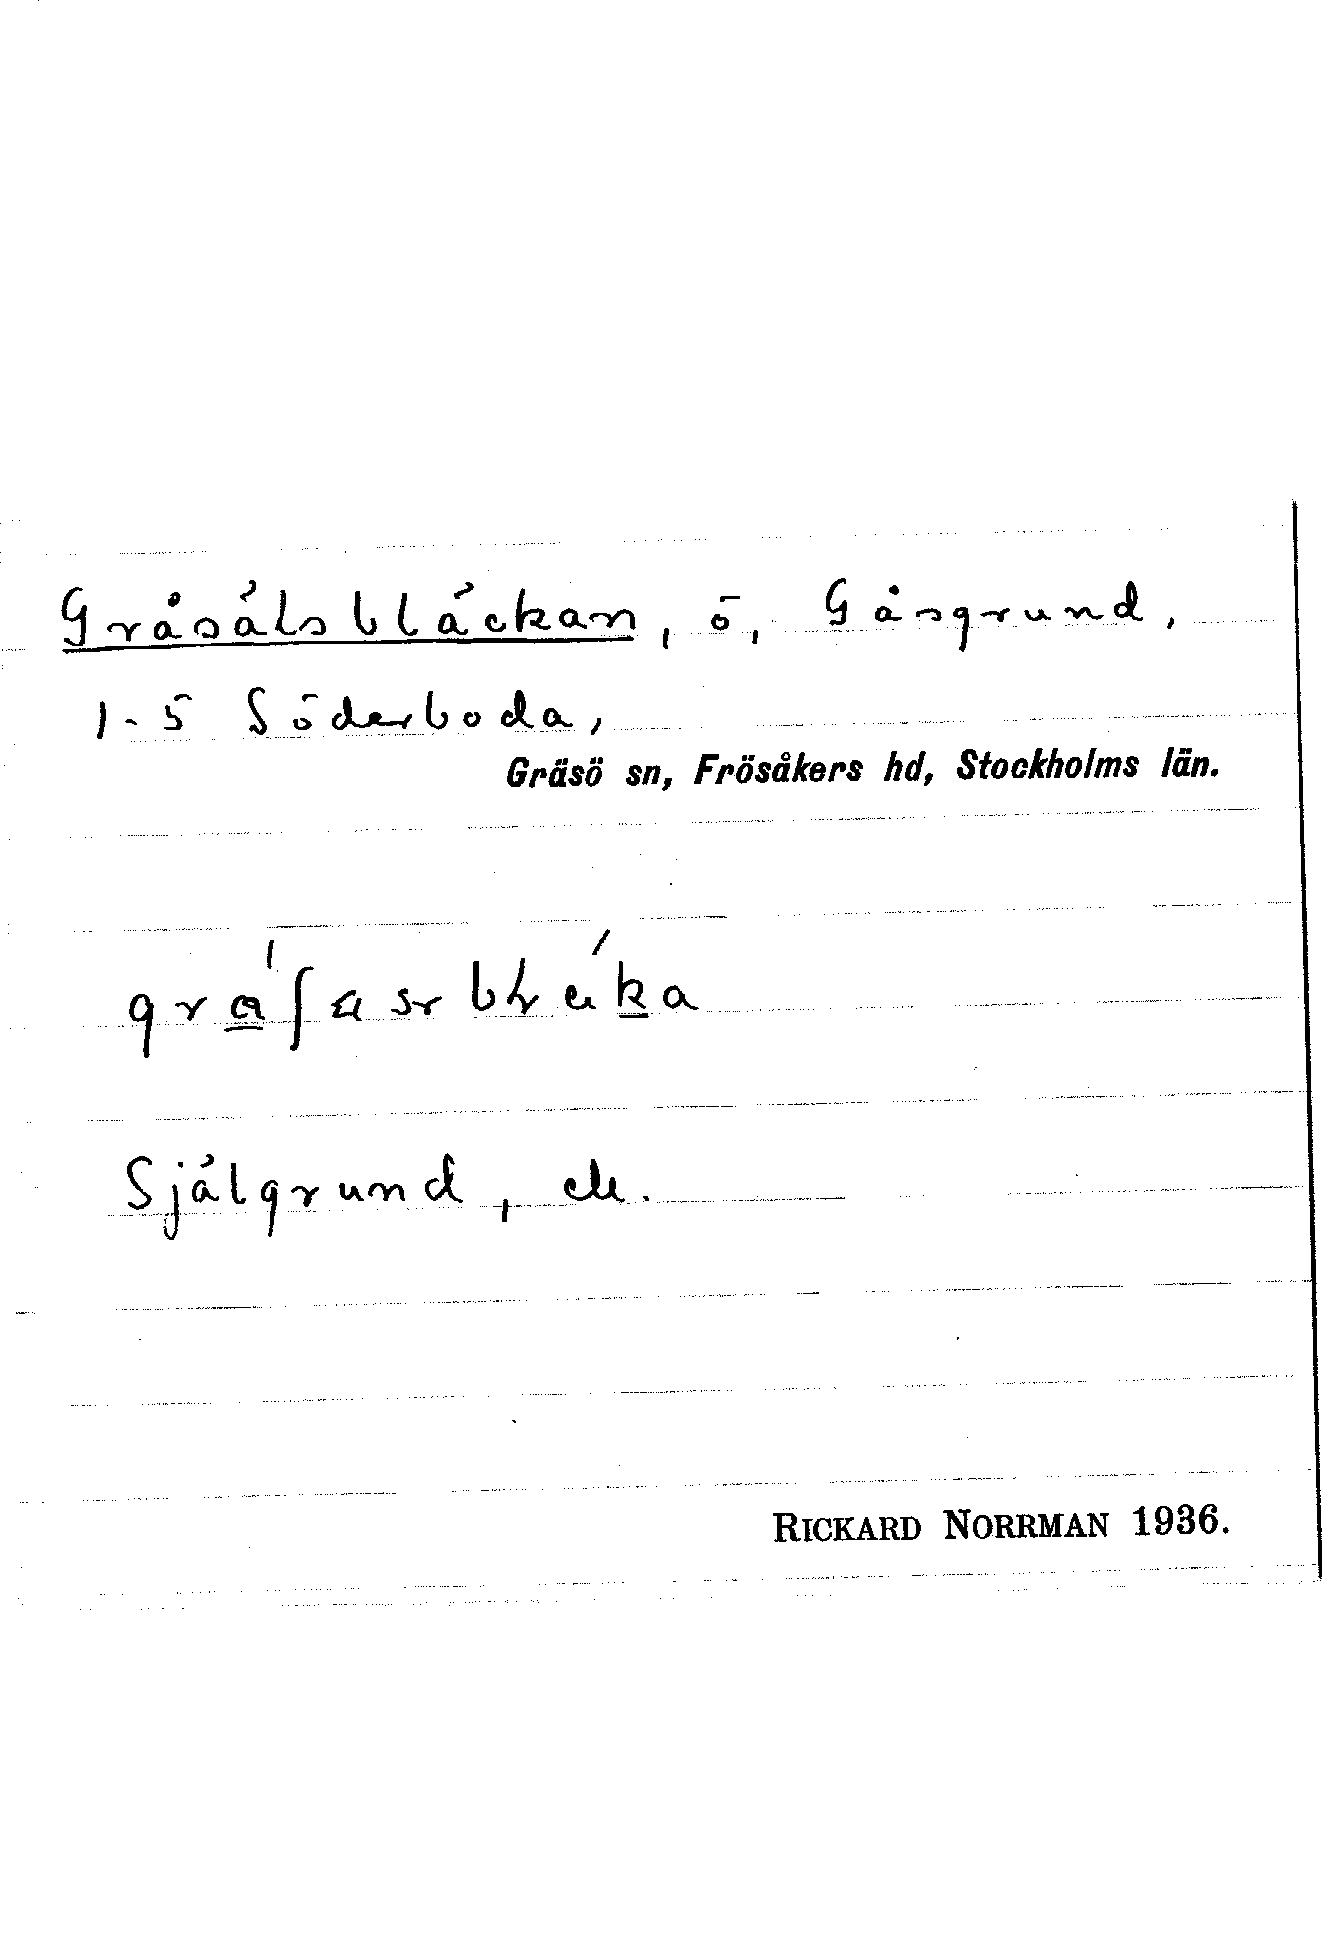 Gråsälsbläckan, ö, Gåsgrund,
1-5 Söderboda,
Gräsö sn, Frösåkers hd, Stockholms län.
Själgrund, ek.
RICKARD NORRMAN 1936.